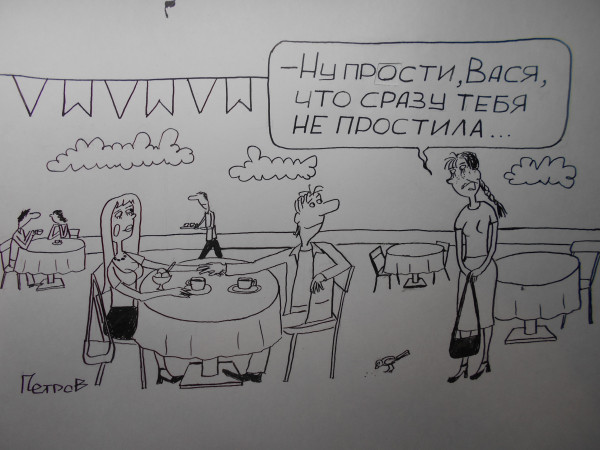 -Ну прости, Вася,
что сразу тебя
не простила...
Петров